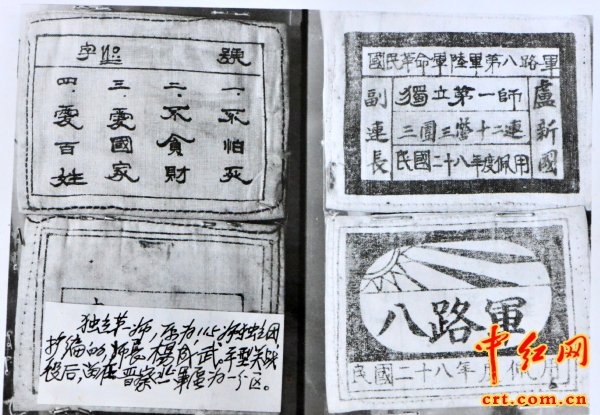 字 號
一、不怕死
二、不貪財
三、愛國家
四、愛百姓
國民革命軍陸軍第八路軍
獨立第一師
三團三營十二連
副連長
盧新國
民國二十八年度佩用
八路軍
民國二十八年度佩用
独立第一师,原为115师独立团
扩编的,师长杨成武,平型关战
役后,留在晋察北军区为一分区。
中红网
crt.com.cn